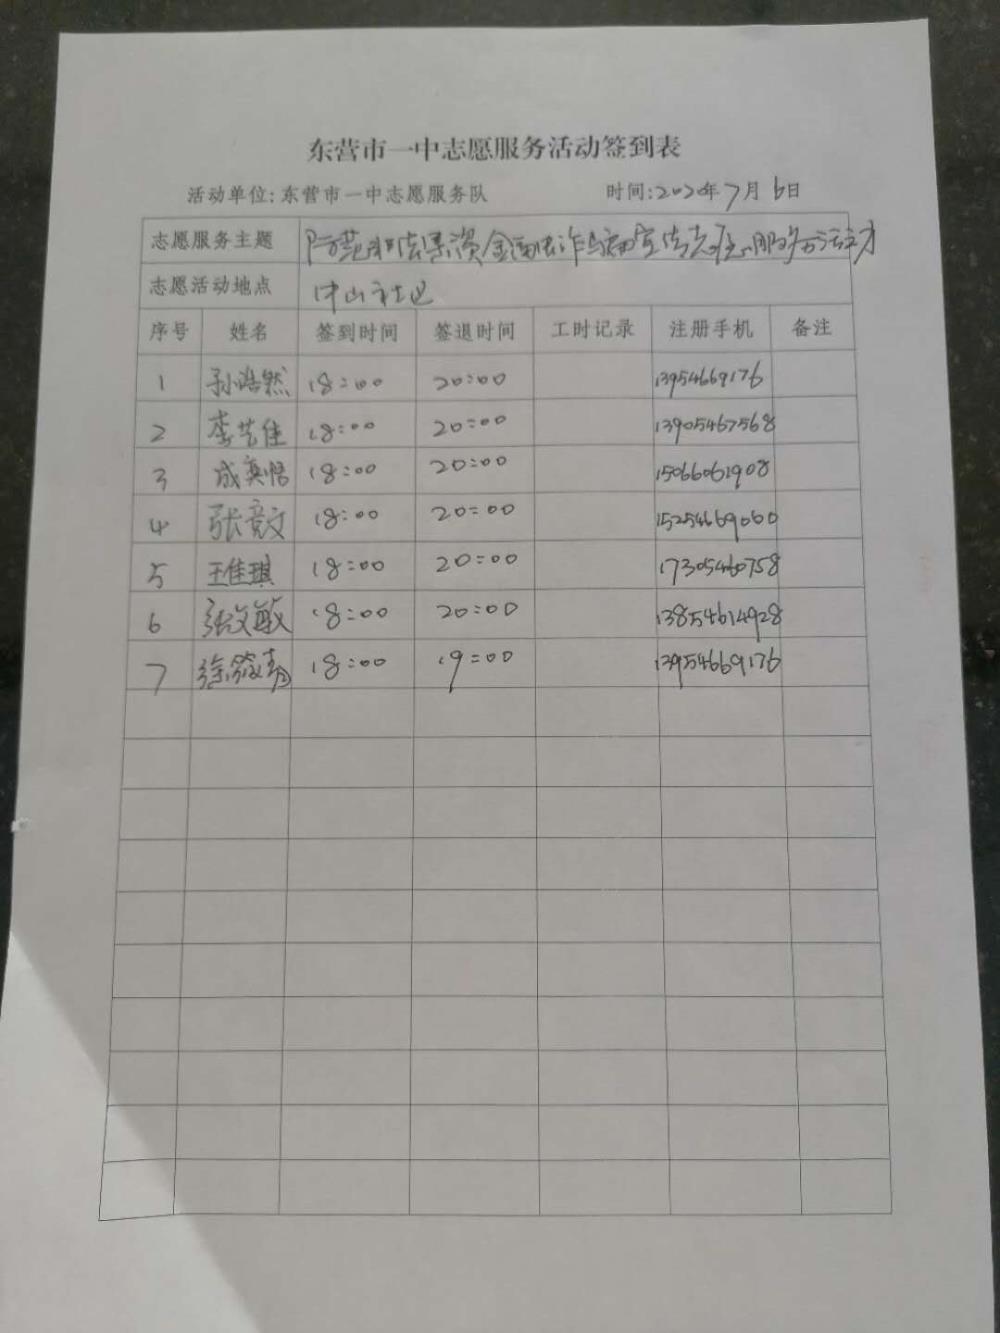 东营市一中志愿服务活动签到表
活动单位:东营市一中志愿服务队 时间:2020年7月6日
志愿服务主题 防范非法集资金融诈骗宣传志愿服务活动
志愿活动地点 中山社区
序号 姓名 签到时间 签退时间 工时记录 注册手机 备注
1 孙皓然 18:00 20:00 13954669176
2 李艺佳 18:00 20:00 13905467568
3 成奕悟 18:00 20:00 15066061908
4 张竞文 18:00 20:00 15254669060
5 王佳琪 18:00 20:00 17305460758
6 张文敏 18:00 20:00 13854614928
7 徐 18:00 19:00 13954669176